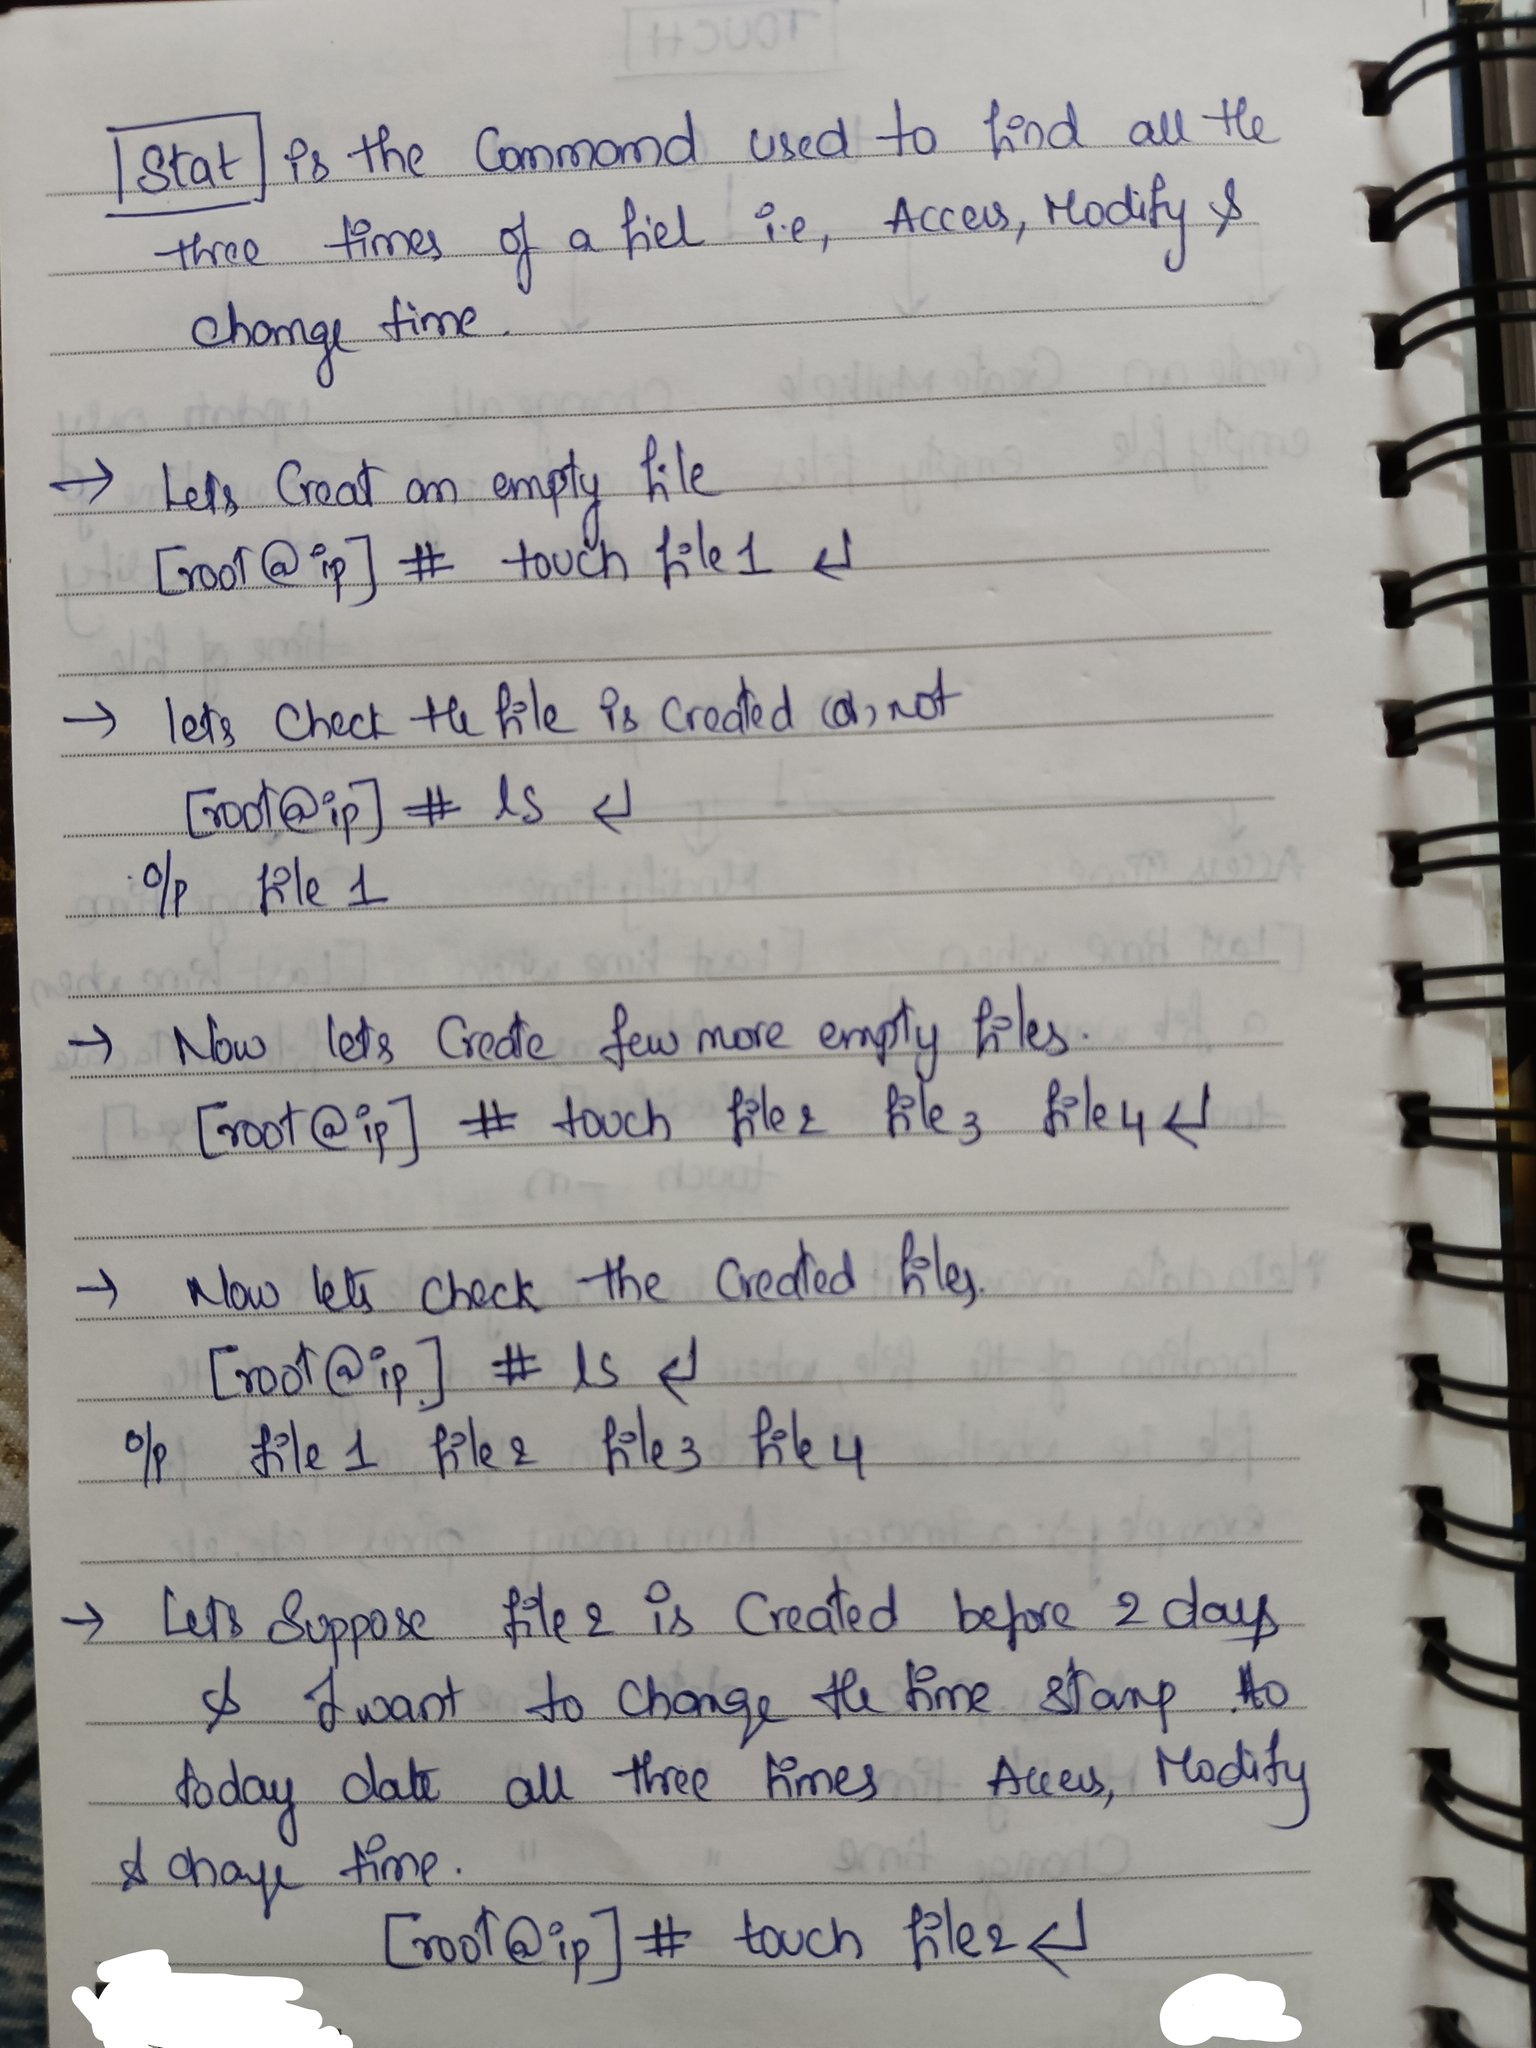 Stat is the Command used to find all the
three times of a fiel i.e, Access, Modify &
change time.
→ Lets Creat an empty file
[root@ip] # touch file1 ↵
→ lets check the file is created (or) not
[root@ip] # ls ↵
o/p file1
→ Now lets Create few more empty files.
[root@ip] # touch file2 file3 file4 ↵
→ Now lets check the Created files.
[root@ip] # ls ↵
o/p file1 file2 file3 file4
→ Lets Suppose file2 is Created before 2 days
& I want to change the time stamp to
today date all three times Access, Modify
& change time.
[root@ip] # touch file2 ↵